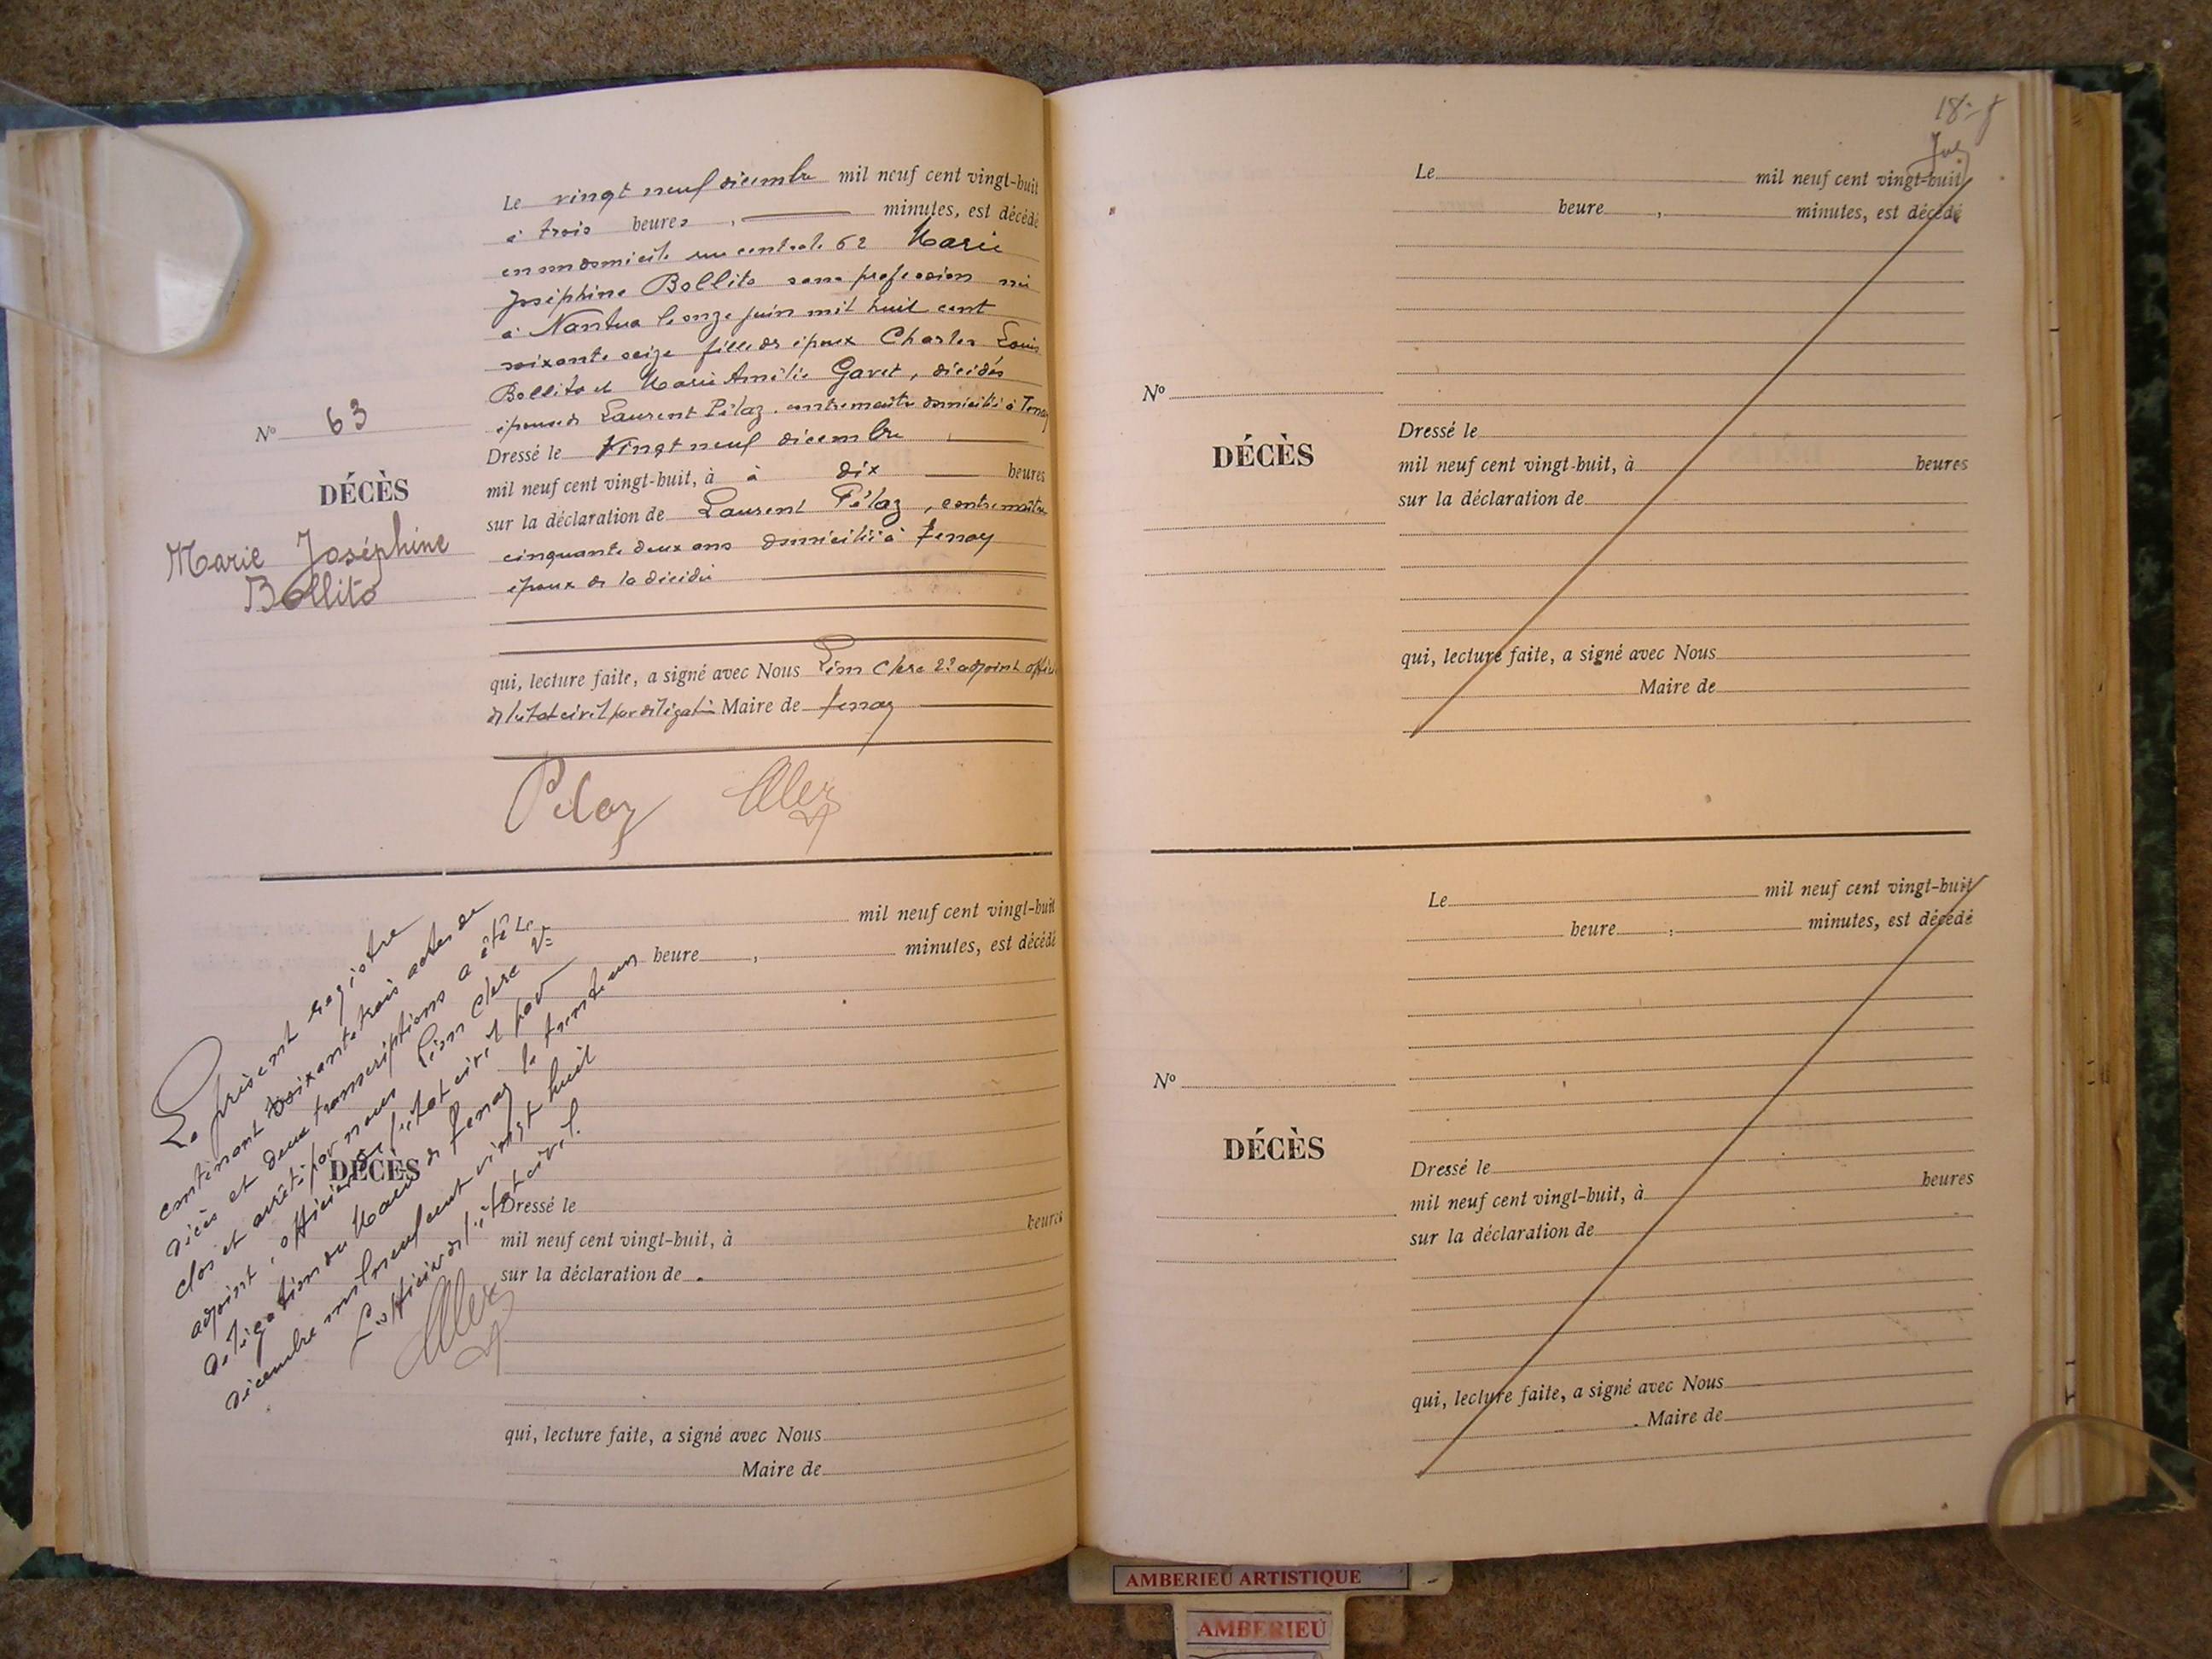 Le vingt neuf décembre mil neuf cent vingt-huit
à trois heures, minutes, est décédé
en son domicile rue centrale 62 Marie
Joséphine Bollito sans profession née
à Nantua le onze juin mil huit cent
soixante seize fille des époux Charles Louis
Bollito et Marie Amélie Gavet, décédés
épouse de Laurent Pélaz, contremaître domicilié à Tenay
Dressé le Vingt neuf décembre
mil neuf cent vingt-huit, à à dix heures
sur la déclaration de Laurent Pélaz, contremaître
cinquante deux ans domicilié à Tenay
époux de la décédée
qui, lecture faite, a signé avec Nous Léon Clerc 2e adjoint officier
de l'état civil par délégation Maire de Tenay
Pelaz
N° 63
DÉCÈS
Marie Joséphine
Bollito
Le présent registre
contenant soixante trois actes de
décès et deux transcriptions a été
clos et arrêté par nous Léon Clerc 2e
adjoint, officier de l'état civil par
délégation du Maire de Tenay le trente un
décembre mil neuf cent vingt huit
L'officier de l'état civil.
Le mil neuf cent vingt-huit
heure, minutes, est décédé
DÉCÈS
Dressé le
mil neuf cent vingt-huit, à heures
sur la déclaration de
qui, lecture faite, a signé avec Nous
Maire de
Le mil neuf cent vingt-huit
heure, minutes, est décédé
N°
DÉCÈS
Dressé le
mil neuf cent vingt-huit, à heures
sur la déclaration de
qui, lecture faite, a signé avec Nous
Maire de
Le mil neuf cent vingt-huit
heure, minutes, est décédé
N°
DÉCÈS
Dressé le
mil neuf cent vingt-huit, à heures
sur la déclaration de
qui, lecture faite, a signé avec Nous
Maire de
AMBERIEU ARTISTIQUE
AMBERIEU